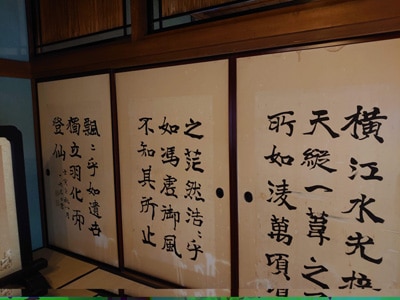 橫江水光接
天縱一葦之
所如凌萬頃
之茫然浩〻乎
如馮虛御風
不知其所止
飄〻乎如遺世
獨立羽化而
登仙